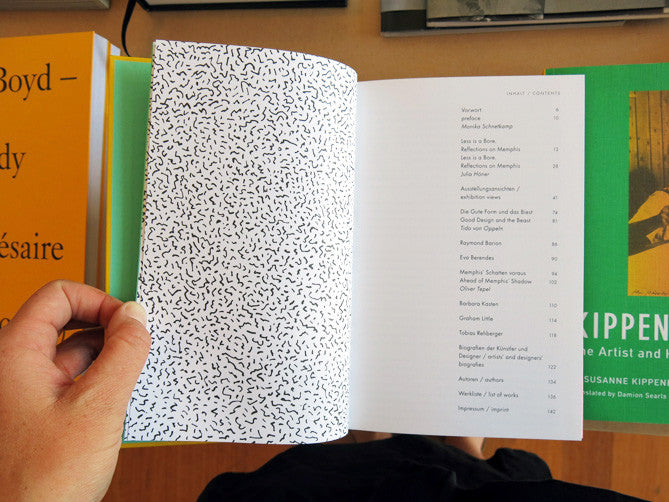 Boyd –
dy
ésaire
INHALT / CONTENTS
Vorwort 6
preface 10
Monika Schnetkamp
Less is a Bore.
Reflections on Memphis 13
Less is a Bore.
Reflections on Memphis 28
Julia Höner
Ausstellungsansichten /
exhibition views 41
Die Gute Form und das Biest 76
Good Design and the Beast 81
Tido von Oppeln
Raymond Barion 86
Eva Berendes 90
Memphis' Schatten voraus 94
Ahead of Memphis' Shadow 102
Oliver Tepel
Barbara Kasten 110
Graham Little 114
Tobias Rehberger 118
Biografien der Künstler und
Designer / artists' and designers'
biografies 122
Autoren / authors 134
Werkliste / list of works 136
Impressum / imprint 142
KIPPEN
he Artist and H
SUSANNE KIPPENB
nslated by Damion Searls